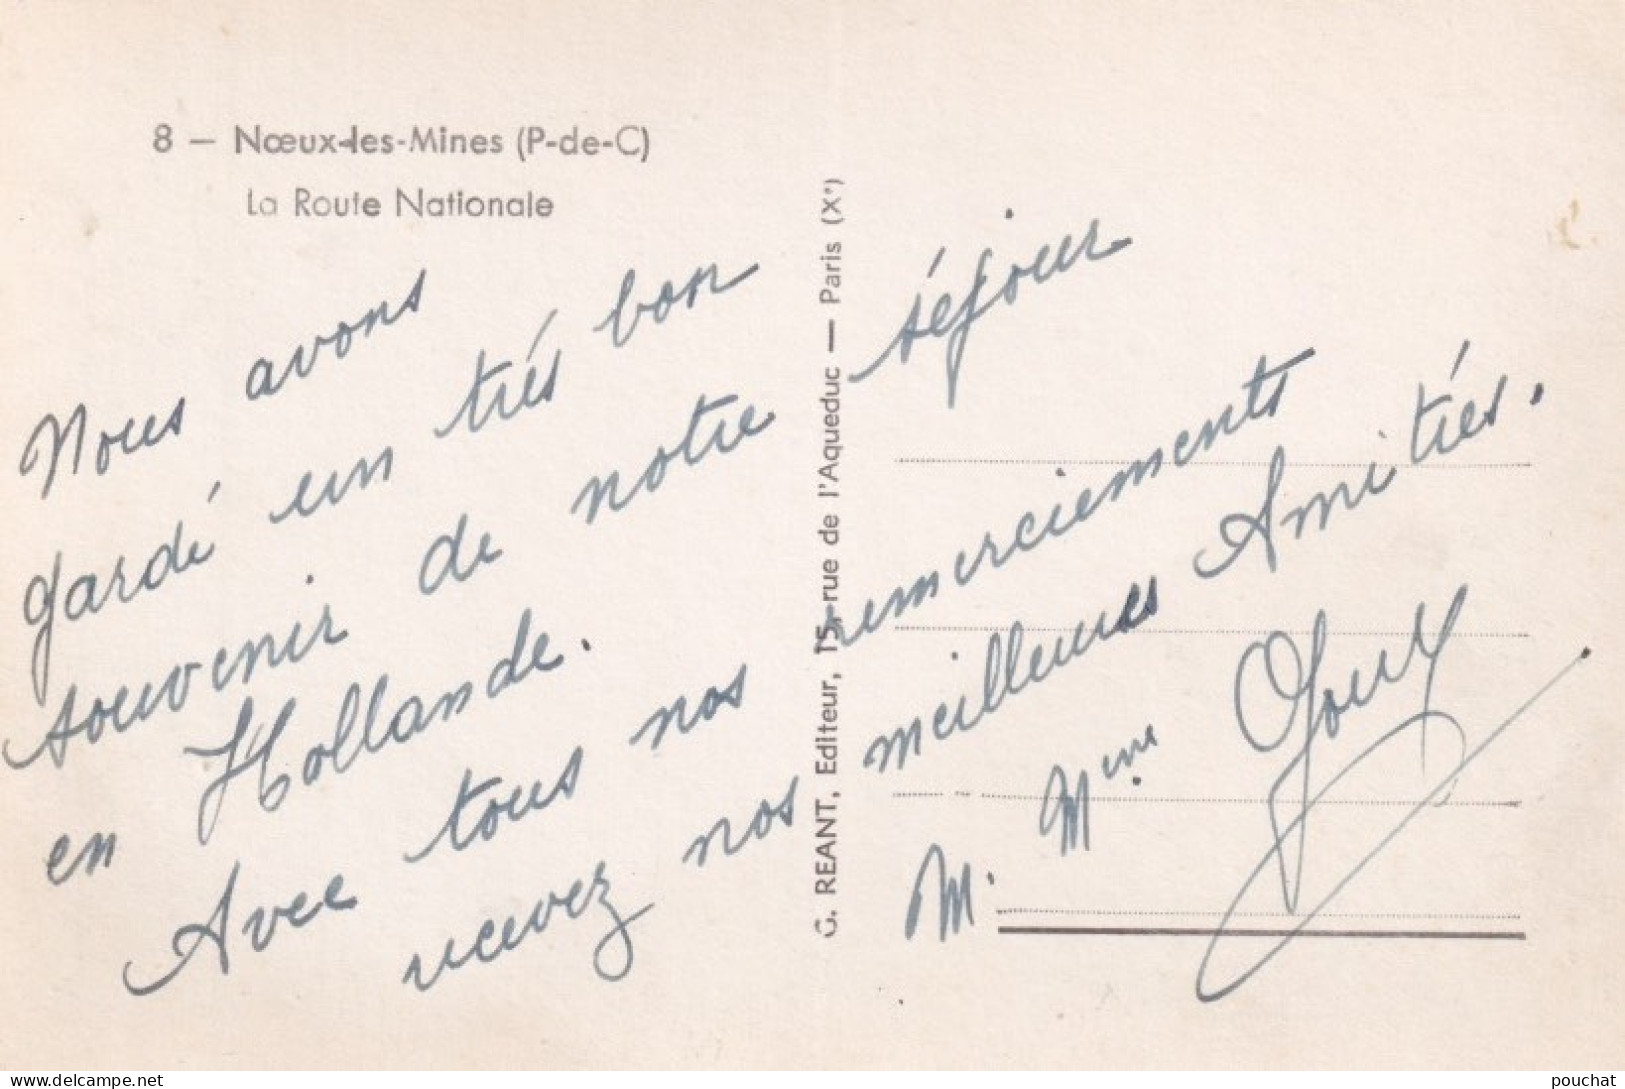 8 — Nœux-les-Mines (P-de-C)
La Route Nationale
Nous avons
gardé un très bon
souvenir de notre séjour
en Hollande.
Avec tous nos remerciements
recevez nos meilleures Amitiés.
M. Mme
G. REANT, Editeur, 15, rue de l'Aqueduc — Paris (Xe)
www.delcampe.net
pouchat